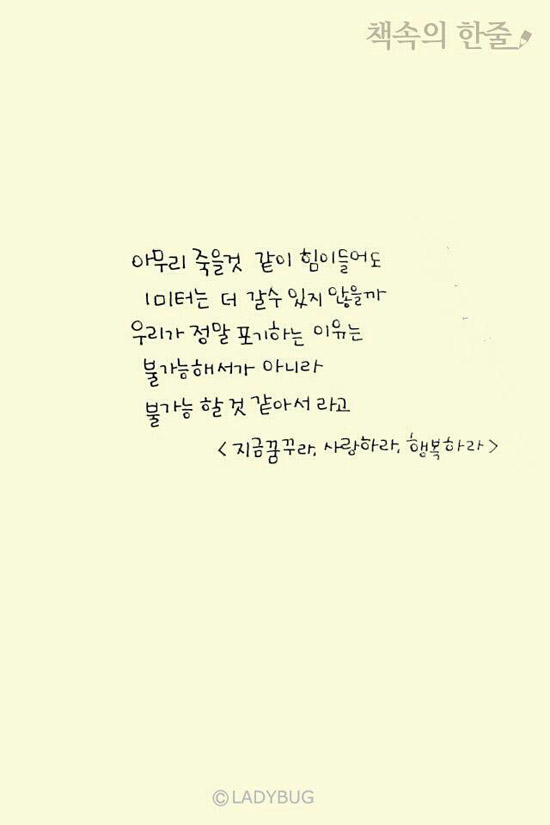 책속의 한줄
아무리 죽을것 같이 힘이들어도
1미터는 더 갈수 있지 않을까
우리가 정말 포기하는 이유는
불가능해서가 아니라
불가능 할 것 같아서 라고
<지금꿈꾸라, 사랑하라, 행복하라>
©LADYBUG